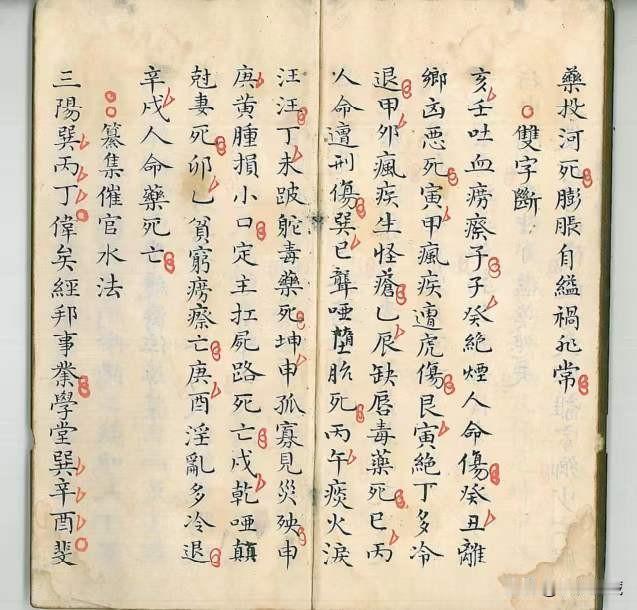 藥投河死膨脹自縊禍非常
雙字斷
亥壬吐血癆瘵子子癸絕煙人命傷癸丑離
鄉凶惡死寅甲瘋疾遭虎傷艮寅絕丁多冷
退甲卯瘋疾生怪瘡乙辰缺唇毒藥死巳丙
人命遭刑傷巽巳聾啞墮胎死丙午痰火淚
汪汪丁未跛駝毒藥死坤申孤寡見災殃申
庚黃腫損小口定主扛屍路死亡戌乾啞顛
尅妻死卯乙貧窮癆瘵亡庚酉淫亂多冷退
辛戌人命藥死亡
纂集催官水法
三陽巽丙丁偉矣經邦事業學堂巽辛酉斐